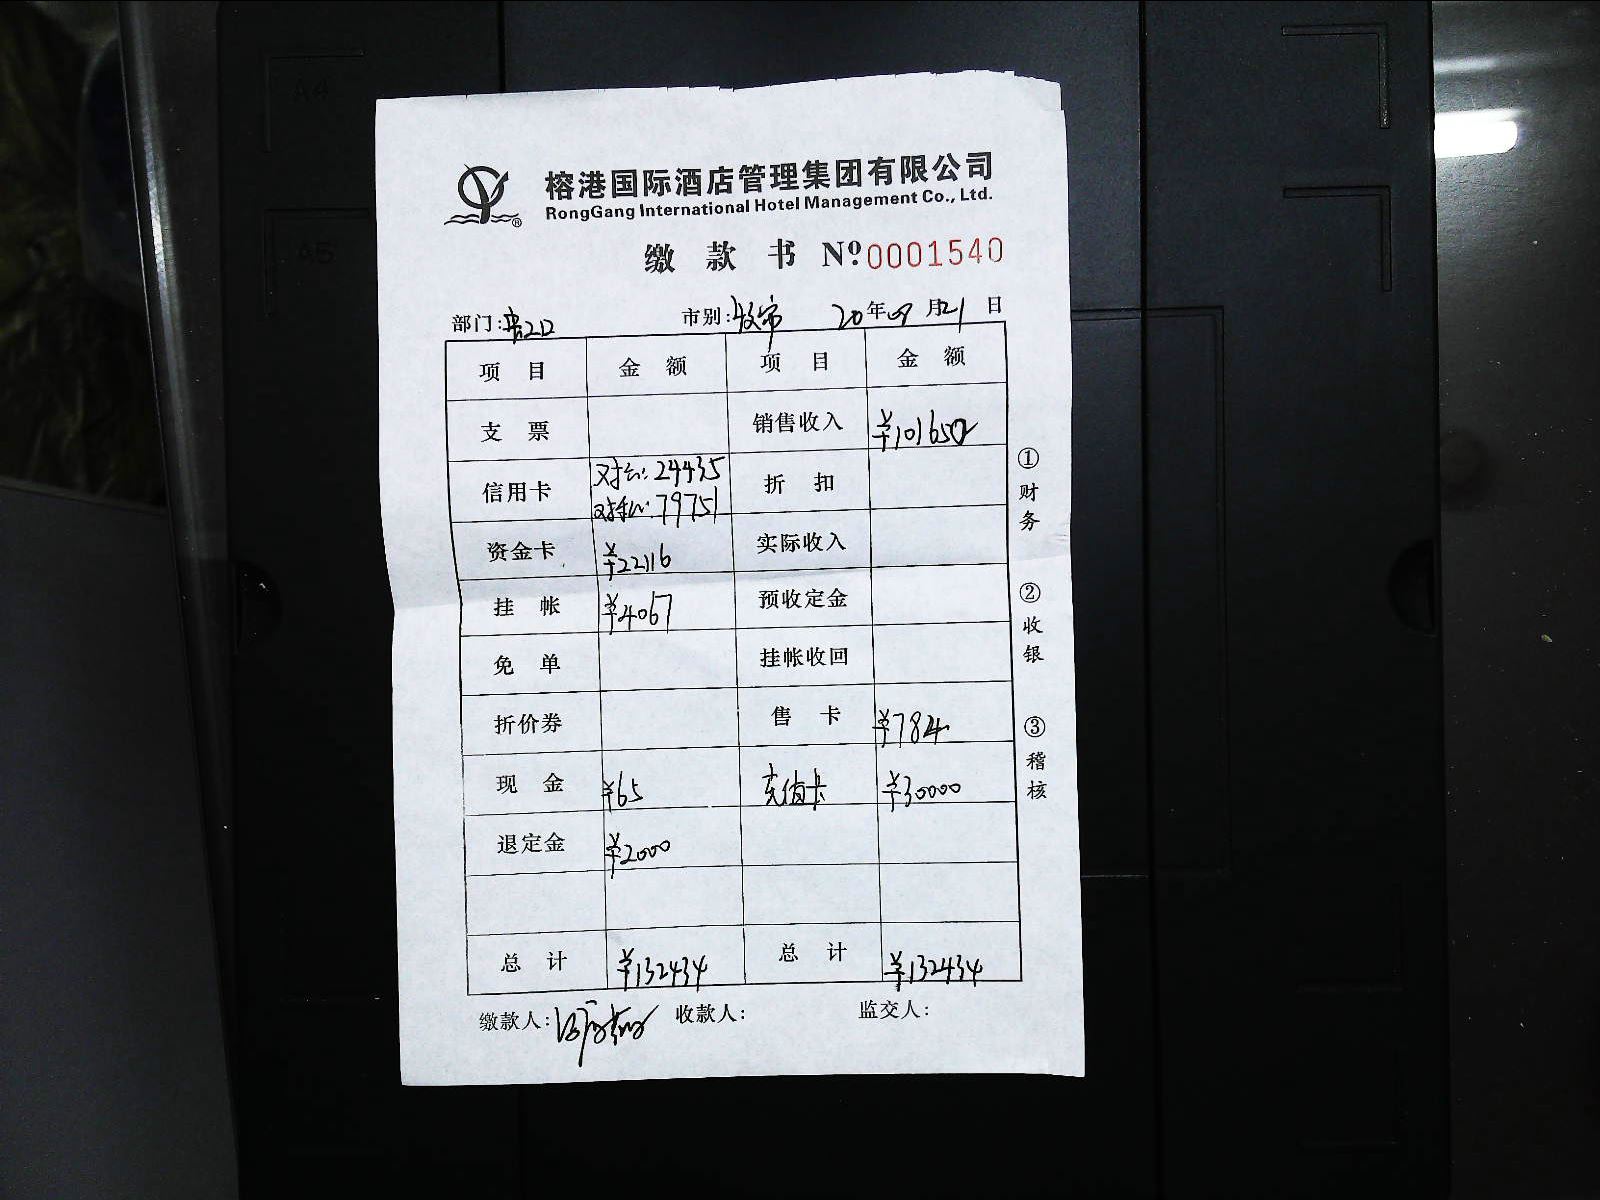 榕港国际酒店管理集团有限公司
RongGang International Hotel Management Co., Ltd.
缴 款 书 Nº:0001540
部门: 市别:收市 20年09月21日
项 目 金 额 项 目 金 额
支 票 销售收入 ¥101650
信用卡 对公:24435 对私:79751 折 扣
资金卡 ¥22116 实际收入
挂 帐 ¥4067 预收定金
免 单 挂帐收回
折价券 售 卡 ¥784
现 金 ¥65 充值卡 ¥30000
退定金 ¥2000
总 计 ¥132434 总 计 ¥132434
缴款人: 收款人: 监交人:
①财务 ②收银 ③稽核
A4
A5